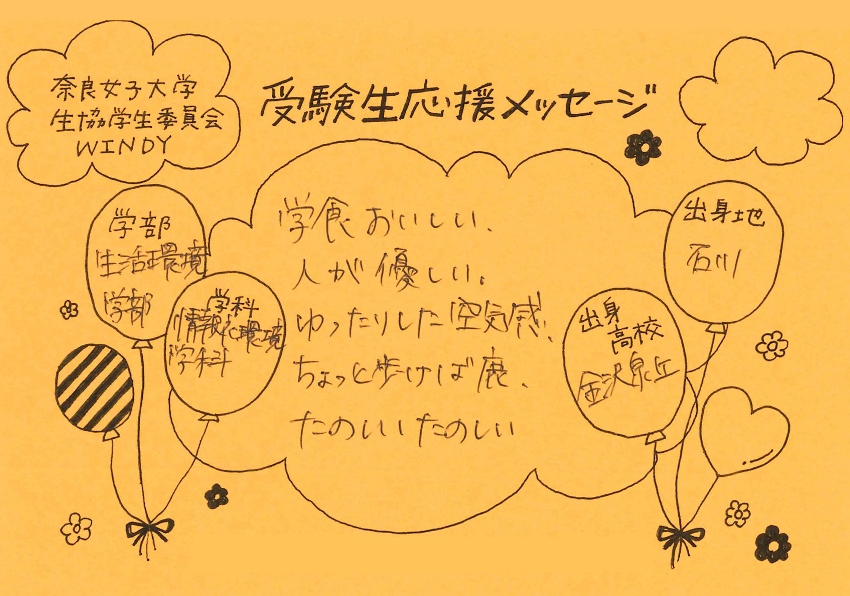 奈良女子大学
生協学生委員会
WINDY
受験生応援メッセージ
学部
生活環境
学部
学科
情報衣環境
学科
学食おいしい、
人が優しい。
ゆったりした空気感、
ちょっと歩けば鹿、
たのしいたのしい
出身地
石川
出身
高校
金沢泉丘